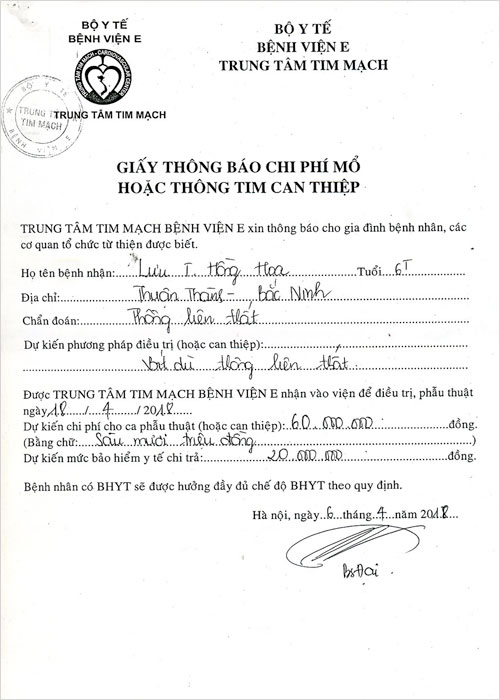 BỘ Y TẾ
BỆNH VIỆN E
TRUNG TÂM TIM MẠCH
BỘ Y TẾ
BỆNH VIỆN E
TRUNG TÂM TIM MẠCH
BỘ Y TẾ
TRUNG TÂM
TIM MẠCH
BỆNH VIỆN E
GIẤY THÔNG BÁO CHI PHÍ MỔ
HOẶC THÔNG TIM CAN THIỆP
TRUNG TÂM TIM MẠCH BỆNH VIỆN E xin thông báo cho gia đình bệnh nhân, các
cơ quan tổ chức từ thiện được biết.
Họ tên bệnh nhân: Lưu T. Hồng Hoa Tuổi 6T
Địa chỉ: Thuận Thành - Bắc Ninh
Chẩn đoán: Thông liên thất
Dự kiến phương pháp điều trị (hoặc can thiệp):
Bít dù thông liên thất
Được TRUNG TÂM TIM MẠCH BỆNH VIỆN E nhận vào viện để điều trị, phẫu thuật
ngày 18 / 4 / 2018
Dự kiến chi phí cho ca phẫu thuật (hoặc can thiệp): 60.000.000 đồng.
(Bằng chữ: Sáu mươi triệu đồng )
Dự kiến mức bảo hiểm y tế chi trả: 20.000.000 đồng.
Bệnh nhân có BHYT sẽ được hưởng đầy đủ chế độ BHYT theo quy định.
Hà nội, ngày 6 tháng 4 năm 2018
Bs Đại